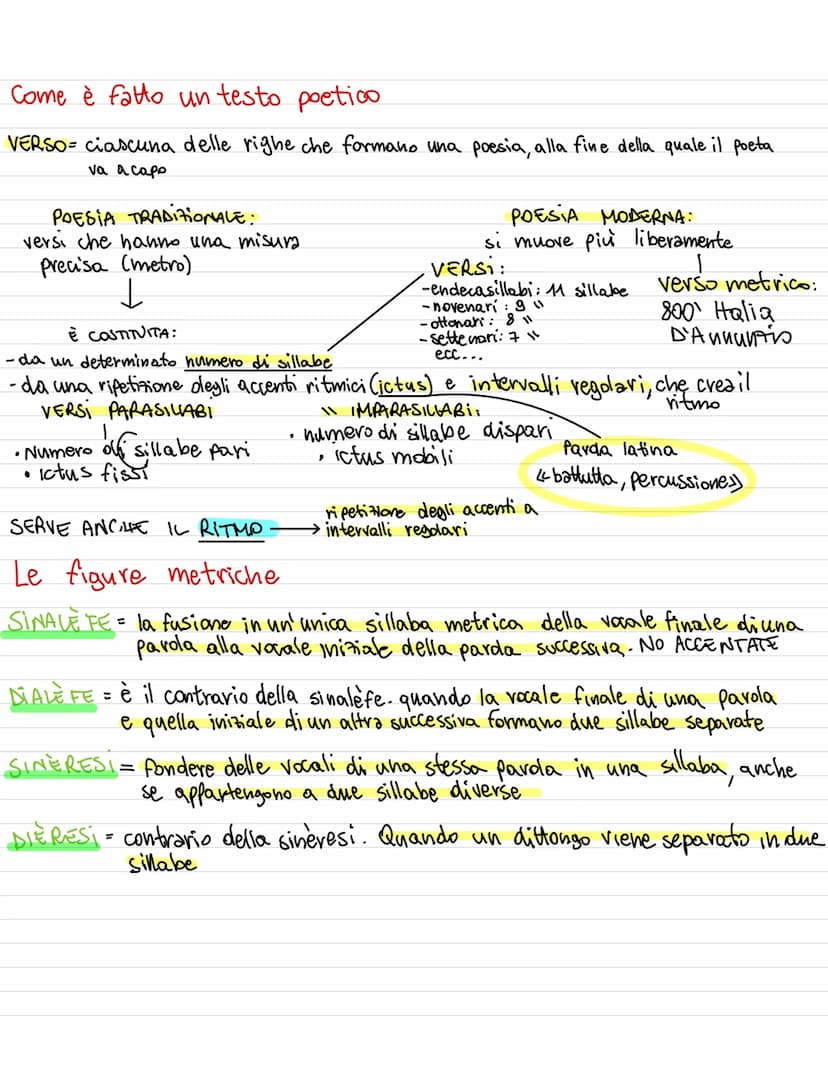 Come è fatto un testo poetico
VERSO= ciascuna delle righe che formano una poesia, alla fine della quale il poeta
va a capo
POESIA TRADIZIONALE:
versi che hanno una misura
precisa (metro)
È COSTITUITA:
POESIA MODERNA:
si muove più liberamente
VERSI:
-endecasillabi: 11 sillabe
-novenari: 9 "
-ottonari: 8 "
-settenari: 7 "
ecc...
verso metrico:
800' Italia
D'Annunzio
-da un determinato numero di sillabe
-da una ripetizione degli accenti ritmici (ictus) e intervalli regolari, che crea il
ritmo
VERSI PARASILLABI
• Numero di sillabe pari
• Ictus fissi
" IMPARASILLABI:
• numero di sillabe dispari
• ictus mobili
Parola latina
«battutta, percussione»
SERVE ANCHE IL RITMO → ripetizione degli accenti a
intervalli regolari
Le figure metriche
SINALÈFE = la fusione in un'unica sillaba metrica della vocale finale di una
parola alla vocale iniziale della parola successiva. NO ACCENTATE
DIALÈFE = è il contrario della sinalèfe. quando la vocale finale di una parola
e quella iniziale di un altra successiva formano due sillabe separate
SINÈRESI = fondere delle vocali di una stessa parola in una sillaba, anche
se appartengono a due sillabe diverse
DIÈRESI = contrario della sinèresi. Quando un dittongo viene separato in due
sillabe